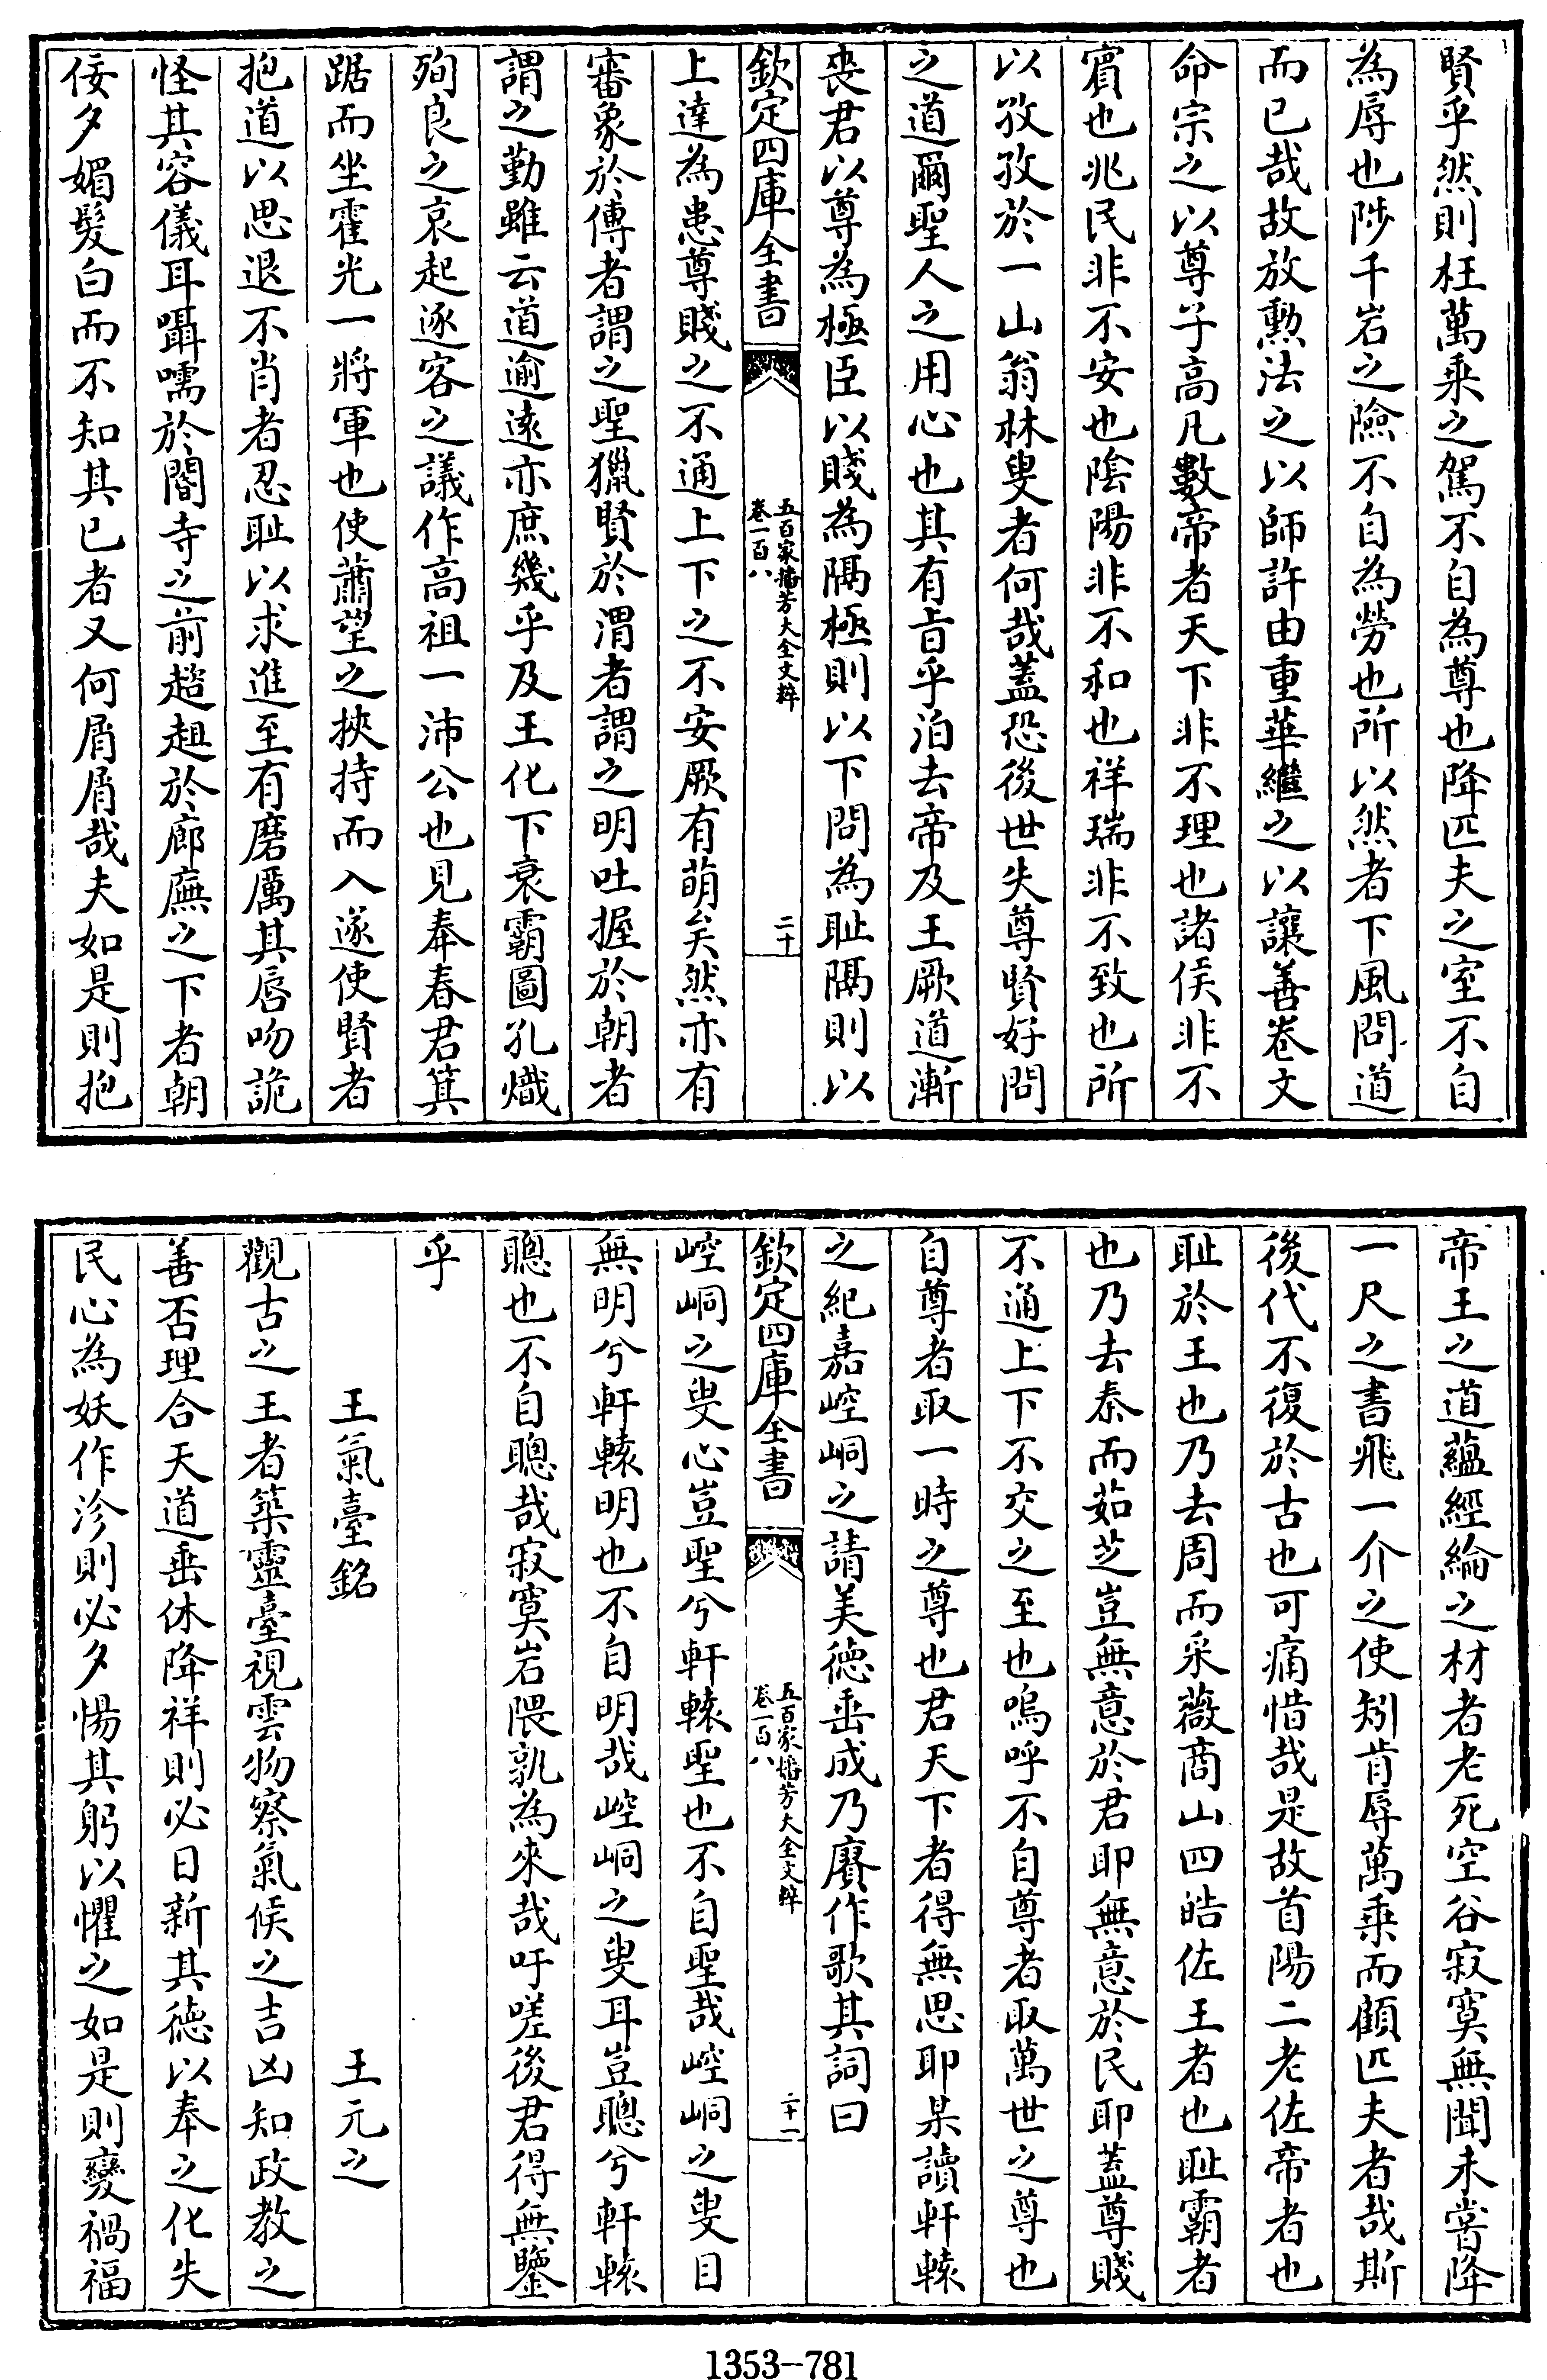 賢乎然則枉萬乘之駕不自為尊也降匹夫之室不自
為辱也陟千岩之險不自為勞也所以然者下風問道
而已哉故放勲法之以師許由重華繼之以讓善卷文
命宗之以尊子高凡數帝者天下非不理也諸侯非不
賓也兆民非不安也陰陽非不和也祥瑞非不致也所
以孜孜於一山翁林叟者何哉蓋恐後世失尊賢好問
之道爾聖人之用心也其有旨乎洎去帝及王厥道漸
喪君以尊為極臣以賤為隅極則以下問為耻隅則以
欽定四庫全書
五百家播芳大全文粹
卷一百八
二十
上達為患尊賤之不通上下之不安厥有萌矣然亦有
審象於傅者謂之聖獵賢於渭者謂之明吐握於朝者
謂之勤雖云道逾遠亦庶幾乎及王化下衰霸圖孔熾
殉良之哀起逐客之議作高祖一沛公也見奉春君箕
踞而坐霍光一將軍也使蕭望之挾持而入遂使賢者
抱道以思退不肖者忍耻以求進至有磨厲其唇吻詭
怪其容儀耳聶嚅於閽寺之前趦趄於廊廡之下者朝
佞夕媚髮白而不知其已者又何屑屑哉夫如是則抱
帝王之道蘊經綸之材者老死空谷寂寞無聞未嘗降
一尺之書飛一介之使矧肯辱萬乘而顧匹夫者哉斯
後代不復於古也可痛惜哉是故首陽二老佐帝者也
耻於王也乃去周而采薇商山四皓佐王者也耻霸者
也乃去秦而茹芝豈無意於君耶無意於民耶蓋尊賤
不通上下不交之至也嗚呼不自尊者取萬世之尊也
自尊者取一時之尊也君天下者得無思耶某讀軒轅
之紀嘉崆峒之請美德垂成乃賡作歌其詞曰
欽定四庫全書
五百家播芳大全文粹
卷一百八
二十一
崆峒之叟心豈聖兮軒轅聖也不自聖哉崆峒之叟目
無明兮軒轅明也不自明哉崆峒之叟耳豈聰兮軒轅
聰也不自聰哉寂寞岩隈孰為來哉吁嗟後君得無鑒
乎
王氣臺銘
王元之
觀古之王者築靈臺視雲物察氣候之吉凶知政教之
善否理合天道垂休降祥則必日新其德以奉之化失
民心為妖作沴則必夕惕其躬以懼之如是則變禍福
1353-781